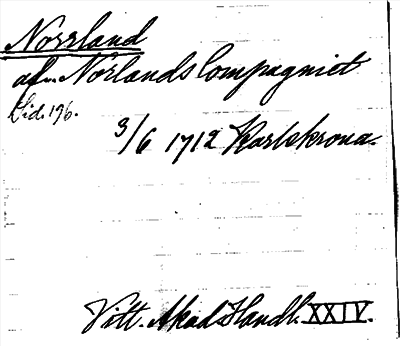 Norrland
af Norlands Compagniet
Sid. 196.
3/6 1712 Karlskrona.
Vitt. Akad. Handl. XXIV.